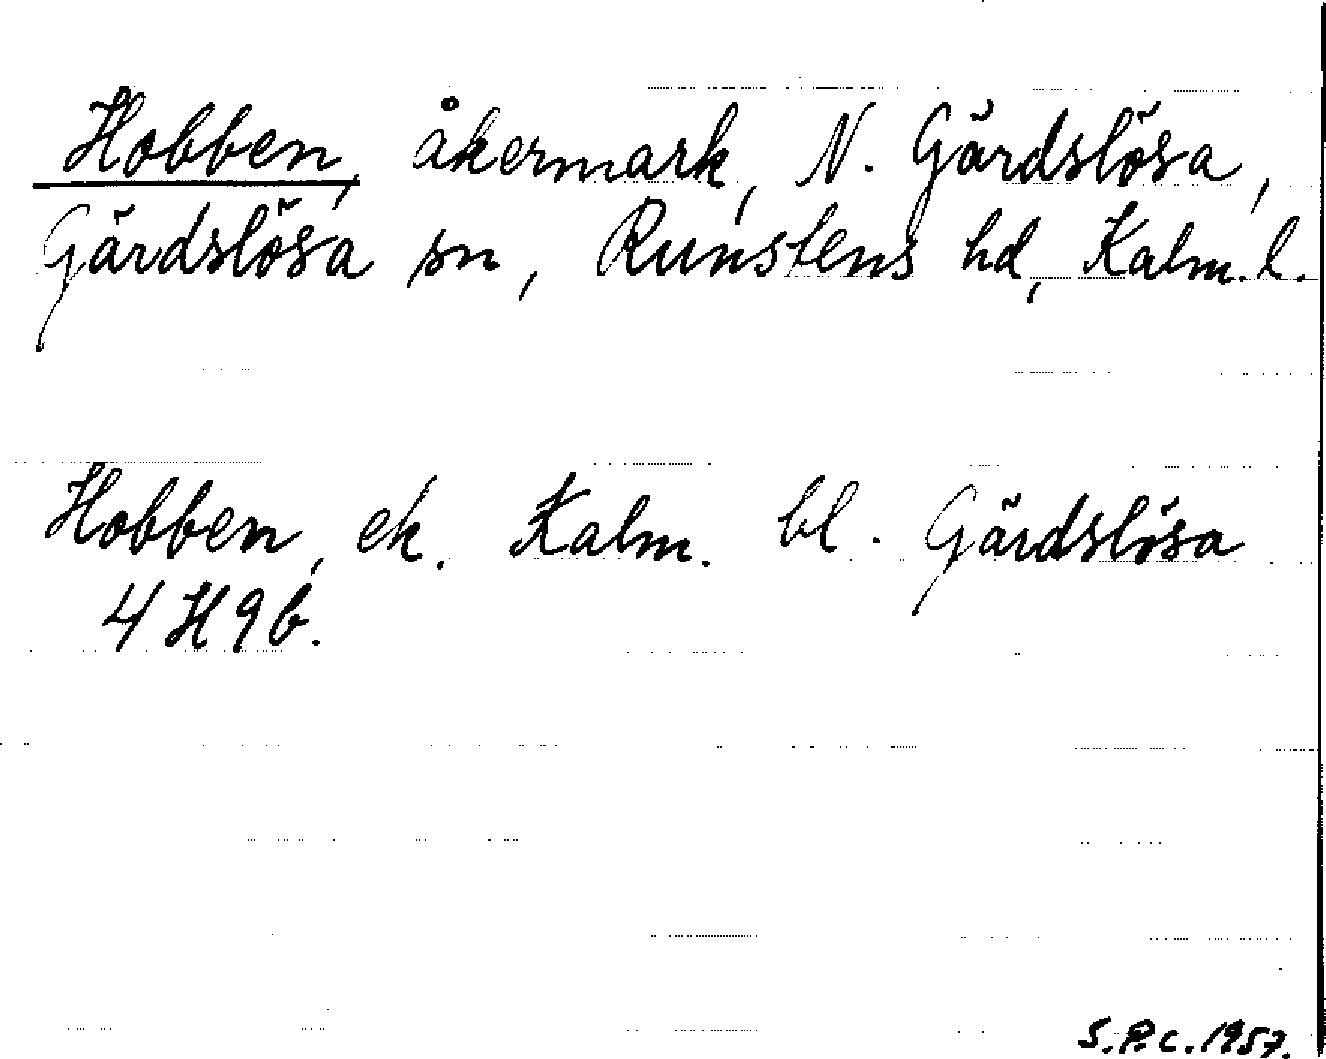 Hobben, åkermark, N. Gärdslösa,
Gärdslösa sn, Runstens hd, Kalm. l.
Hobben, ek. Kalm. bl. Gärdslösa
4 H 9 b.
S.P.c. 1957.